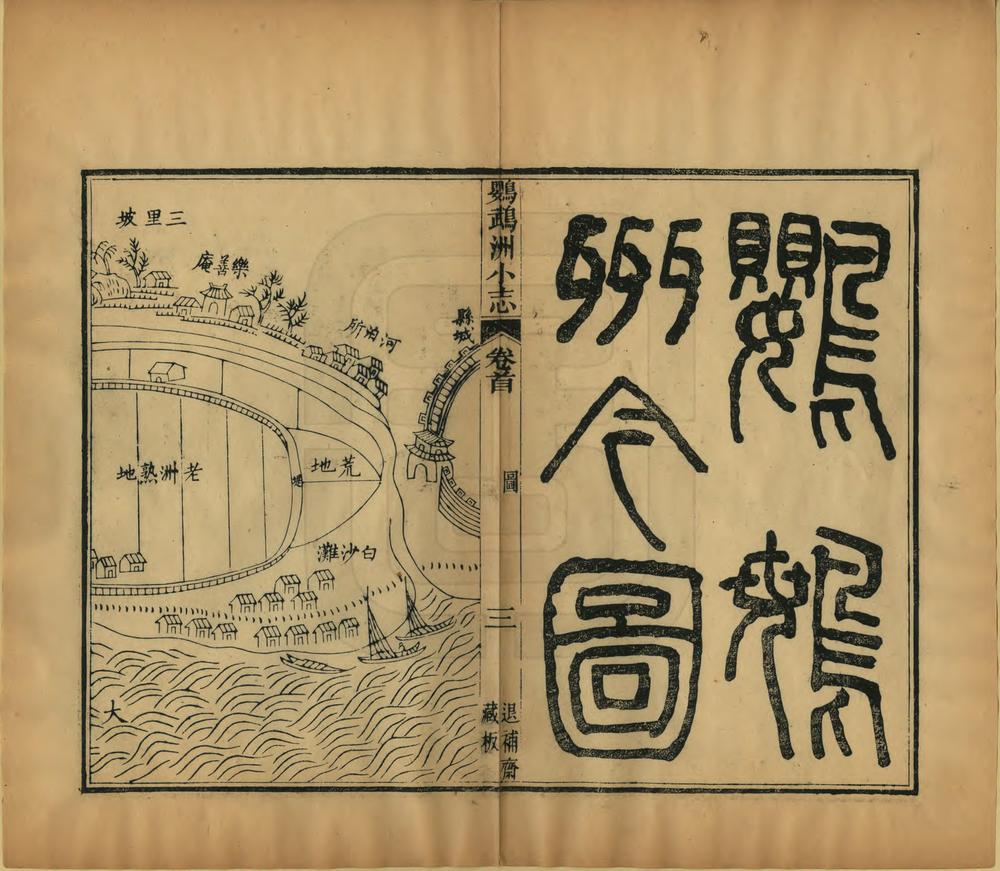 鸚䳇
州今圖
鸚鵡洲小志
卷首
圖
三
退補齋
藏板
縣城
河泊所
樂善庵
三里坡
荒地
堤
老洲熟地
白沙灘
大